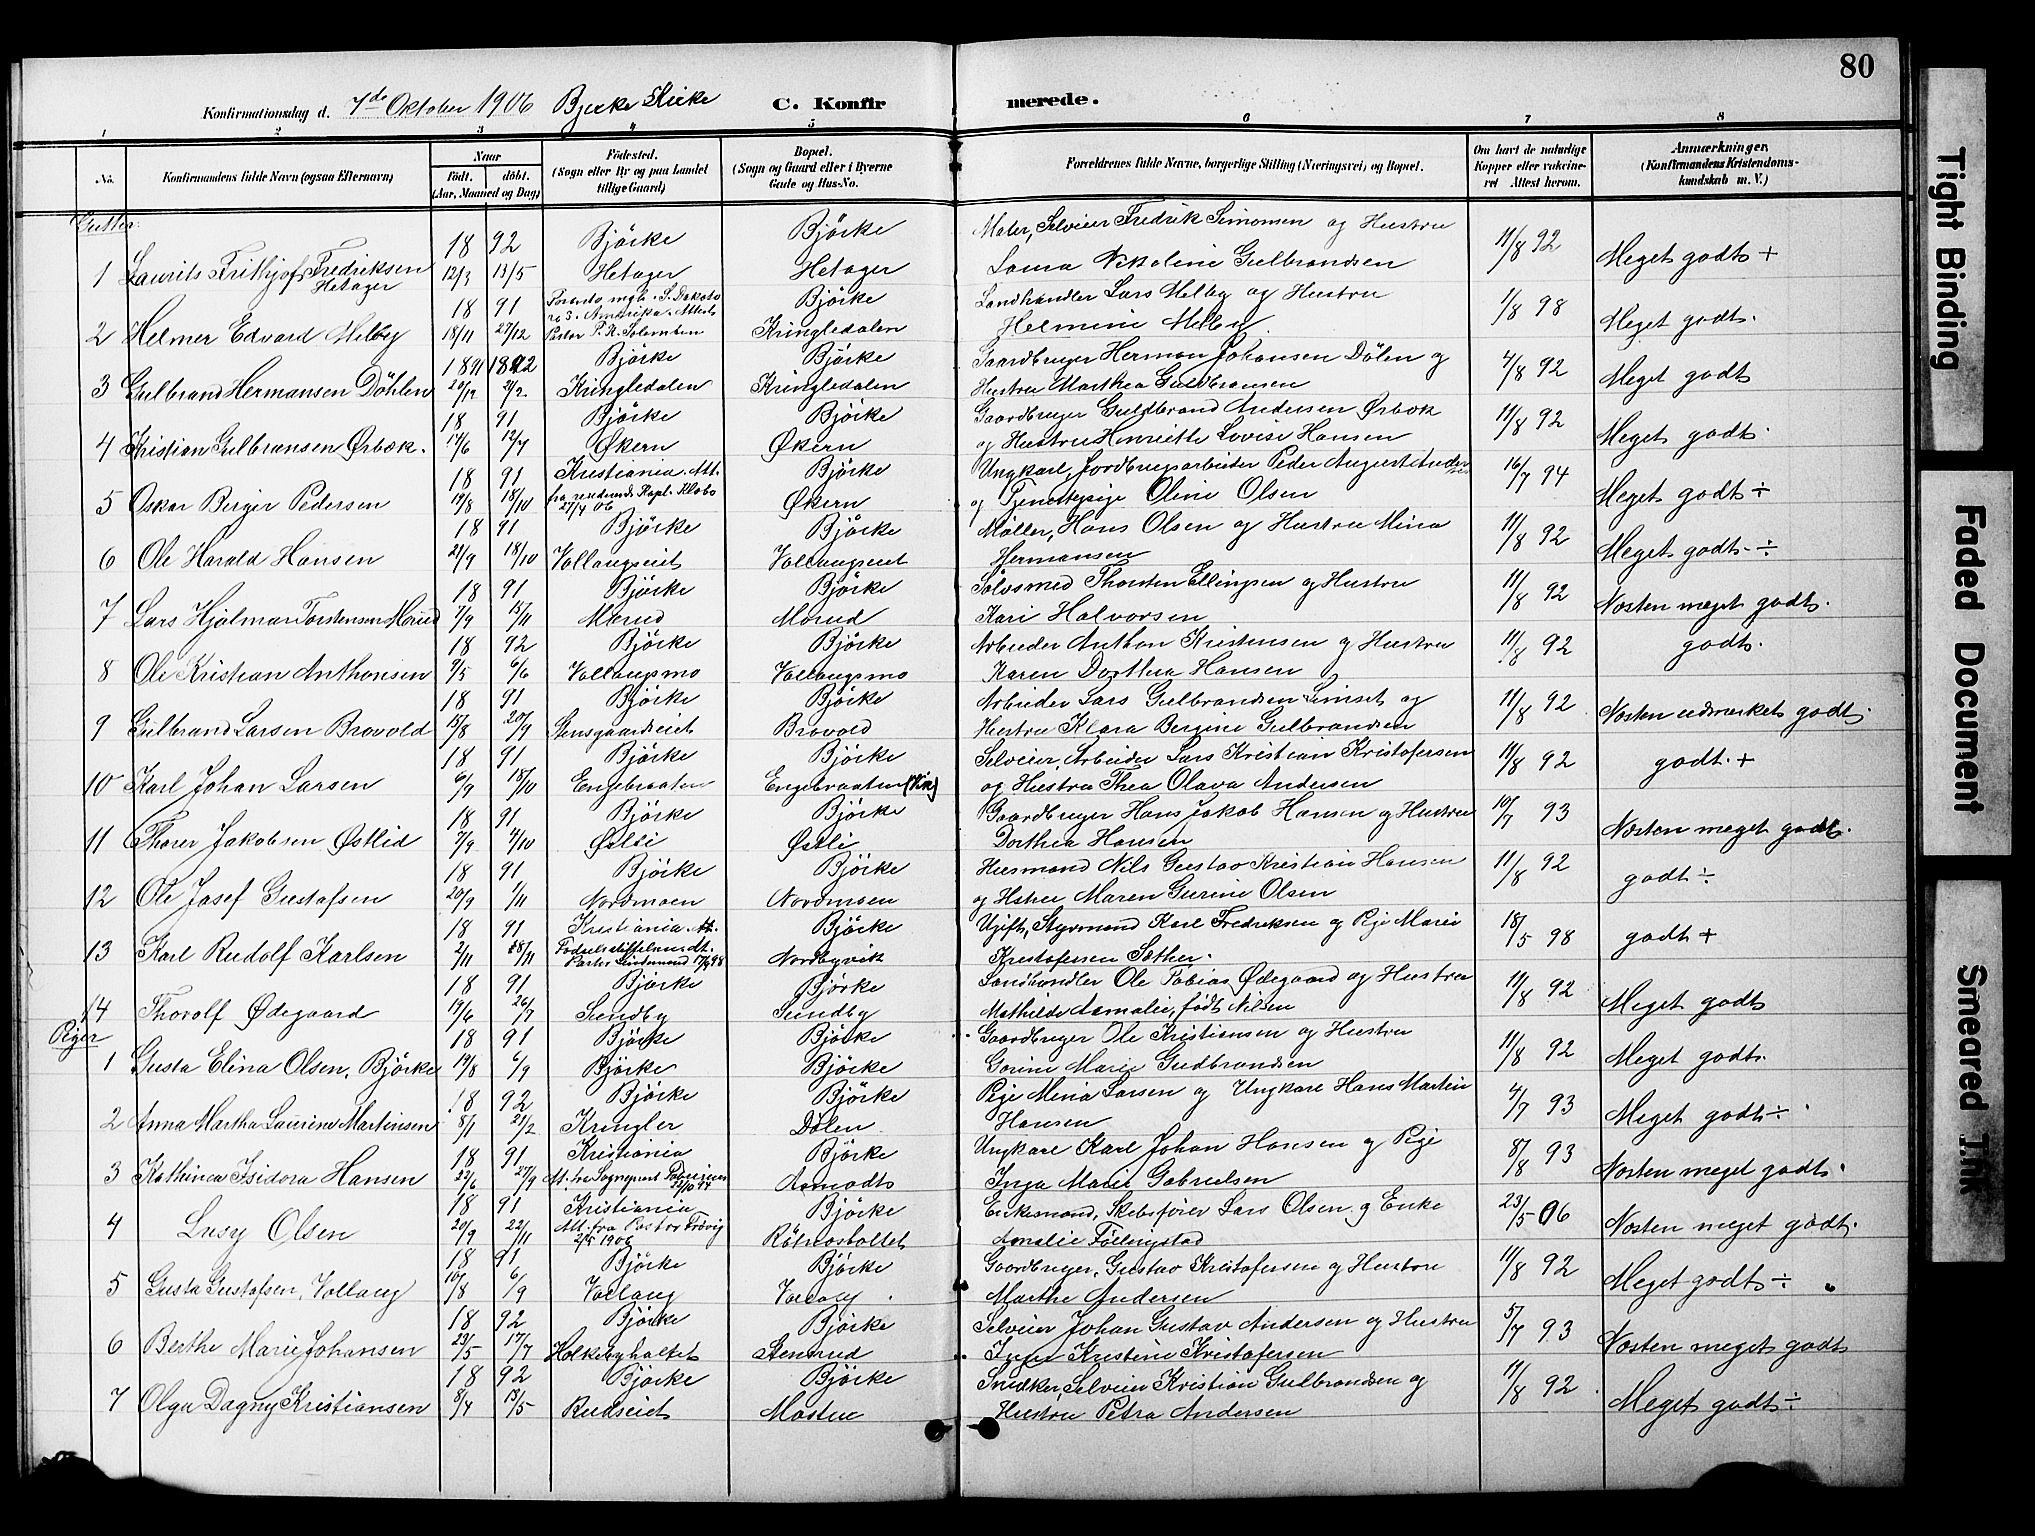 80
Konfirmationsdag d. 7de Oktober 1906 Bjerke Kirke C. Konfir merede.
1 2 3 4 5 6 7 8
No. Konfirmandens fulde Navn (ogsaa Efternavn) Naar Født. døbt. (Aar, Maaned og Dag) Fødested. (Sogn eller By og paa Landet tillige Gaard) Bopæl. (Sogn og Gaard eller i Byerne Gade og Hus-No. Forældrenes fulde Navne, borgerlige Stilling (Næringsvei) og Bopæl. Om havt de naturlige Kopper eller vaksineret Attest herom. Anmærkninger. (Konfirmandens Kristendomskundskab m. V.)
Gutter:
18 92 Björke Björke Maler, Selveier Fredrik Simonsen og Hustru 11/8 92
1 Laurits Frithjof Fredriksen Hetager 12/3 15/5 Hetager Hetager Laura Nikoline Gulbrandsen Meget godt +
18 91 Björke Landhandler Lars Melby og Hustru 1/8 98
2 Helmer Edvard Melby 18/11 27/12 Kringledalen Helmine Melby. Meget godt.
1891 1892 Björke Björke Gaardbruger Herman Johansen Dölen og 4/8 92
3 Gulbrand Hermansen Döhlen 20/12 21/2 Kringledalen Kringledalen Hustru Marthea Guldbransen Meget godt
18 91 Björke Björke Gaardbruger Guldbrand Andersen Ørbæk 11/8 92
4 Kristian Gulbransen Ørbæk. 17/6 12/7 Økern Økern og Hustru Henriette Lovise Hansen Meget godt.
18 91 Kristiania. Att. Björke Ungkarl, Jordbrugsarbeider Peder August Andersen 16/7 94
5 Oskar Birger Pedersen 19/8 18/10 27/4 06 Økern og Tjenestepige Oline Olsen Meget godt ÷
18 91 Björke Björke Møller, Hans Olsen og Hustru Mina 11/8 92
6 Ole Harald Hansen 21/9 18/10 Vollaugseiet Vollaugseiet Hermansen Meget godt. ÷
18 91 Björke Björke Sölvsmed Thorsten Ellingsen og Hustru 11/8 92
7 Lars Hjalmar Torstensen Morud 7/9 15/11 Morud Morud Kari Halvorsen Næsten meget godt.
18 92 Björke Björke Arbeider Anthon Kristensen og Hustru 11/8 92
8 Ole Kristian Anthonsen 9/5 6/6 Vollaugsmo Vollaugsmo Karen Dorthea Hansen godt.
18 91 Björke Björke Arbeider Lars Gulbrandsen Simset og 11/8 92
9 Gulbrand Larsen Brovold 15/8 20/9 Stensgaardseiet Brovold Hustru Klara Bergine Gulbrandsen Næsten udmerket godt.
18 91 Björke Björke Selveier, Arbeider Lars Kristian Kristofersen 11/8 92
10 Karl Johan Larsen 6/9 18/10 Engebraaten Engebraaten (Vik) og Hustru Thea Olava Andersen godt. +
18 91 Björke Björke Gaardbruger Hans Jakob Hansen og Hustru 10/7 93
11 Thorer Jakobsen Østlid 7/9 4/10 Østli Østli Dorthea Hansen Næsten meget godt.
18 91 Björke Björke Husmand Nils Gustav Kristian Hansen 11/8 92
12 Ole Josef Gustafsen 20/9 1/11 Nordmoen Nordmoen og Hstru Maren Gurine Olsen godt ÷
18 91 Kristiania. Att. Björke Ugift, Styrmand Karl Fredriksen og Pige Marie 18/5 98
13 Karl Rudolf Karlsen 2/11 28/11 Födselsstiftelsen Nordbyvik Kristofersen Sæther. godt +
18 91 Björke Björke Landhandler Ole Tobias Ødegaard og Hustru 11/8 92
14 Thorolf Ødegaard 19/6 26/7 Sundby Sundby Mathilde Aamalie, født Nilsen Meget godt
Piger
18 91 Björke Björke Gaardbruger Ole Kristiansen og Hustru 11/8 92
1 Gusta Elina Olsen, Björke 19/8 6/9 Björke Björke Gorine Marie Gudbrandsen Meget godt.
18 92 Björke Björke Pige Mina Larsen og Ungkarl Hans Martin 4/7 93
2 Anna Martha Laurine Martinsen 8/1 21/2 Kringler Dölen Hansen Meget godt ÷
18 91 Kristiania Björke Ungkarl Karl Johan Hansen og Pige 8/8 93
3 Kathinca Isidora Hansen 22/6 27/9 Aamodt Inga Marie Gabrielsen Næsten meget godt.
18 91 Kristiania Björke Enkemand, Skibsfører Lars Olsen og Enke 23/5 06
4 Lusy Olsen 20/9 22/11 Att. fra Pastor 2/5 1906 Amalie Föllingstad Næsten meget godt.
18 91 Björke Björke Gaardbruger, Gustav Kristofersen og Hustru 11/8 92
5 Gusta Gustafsen, Vollaug 10/8 6/9 Vollaug Vollaug Marthe Andersen Meget godt ÷
18 92 Björke Björke Selveier Johan Gustav Andersen og Hustru 5/7 93
6 Berthe Marie Johansen 23/5 17/7 Holkebyholtet Stenrud Inga Kristine Kristofersen Næsten meget godt
18 92 Björke Björke Snedker, Selveier Kristian Gulbrandsen og 11/8 92
7 Olga Dagny Kristiansen 8/4 13/5 Rudseiet Mostue Hustru Petra Andersen Meget godt ÷
Tight Binding
Faded Document
Smeared Ink